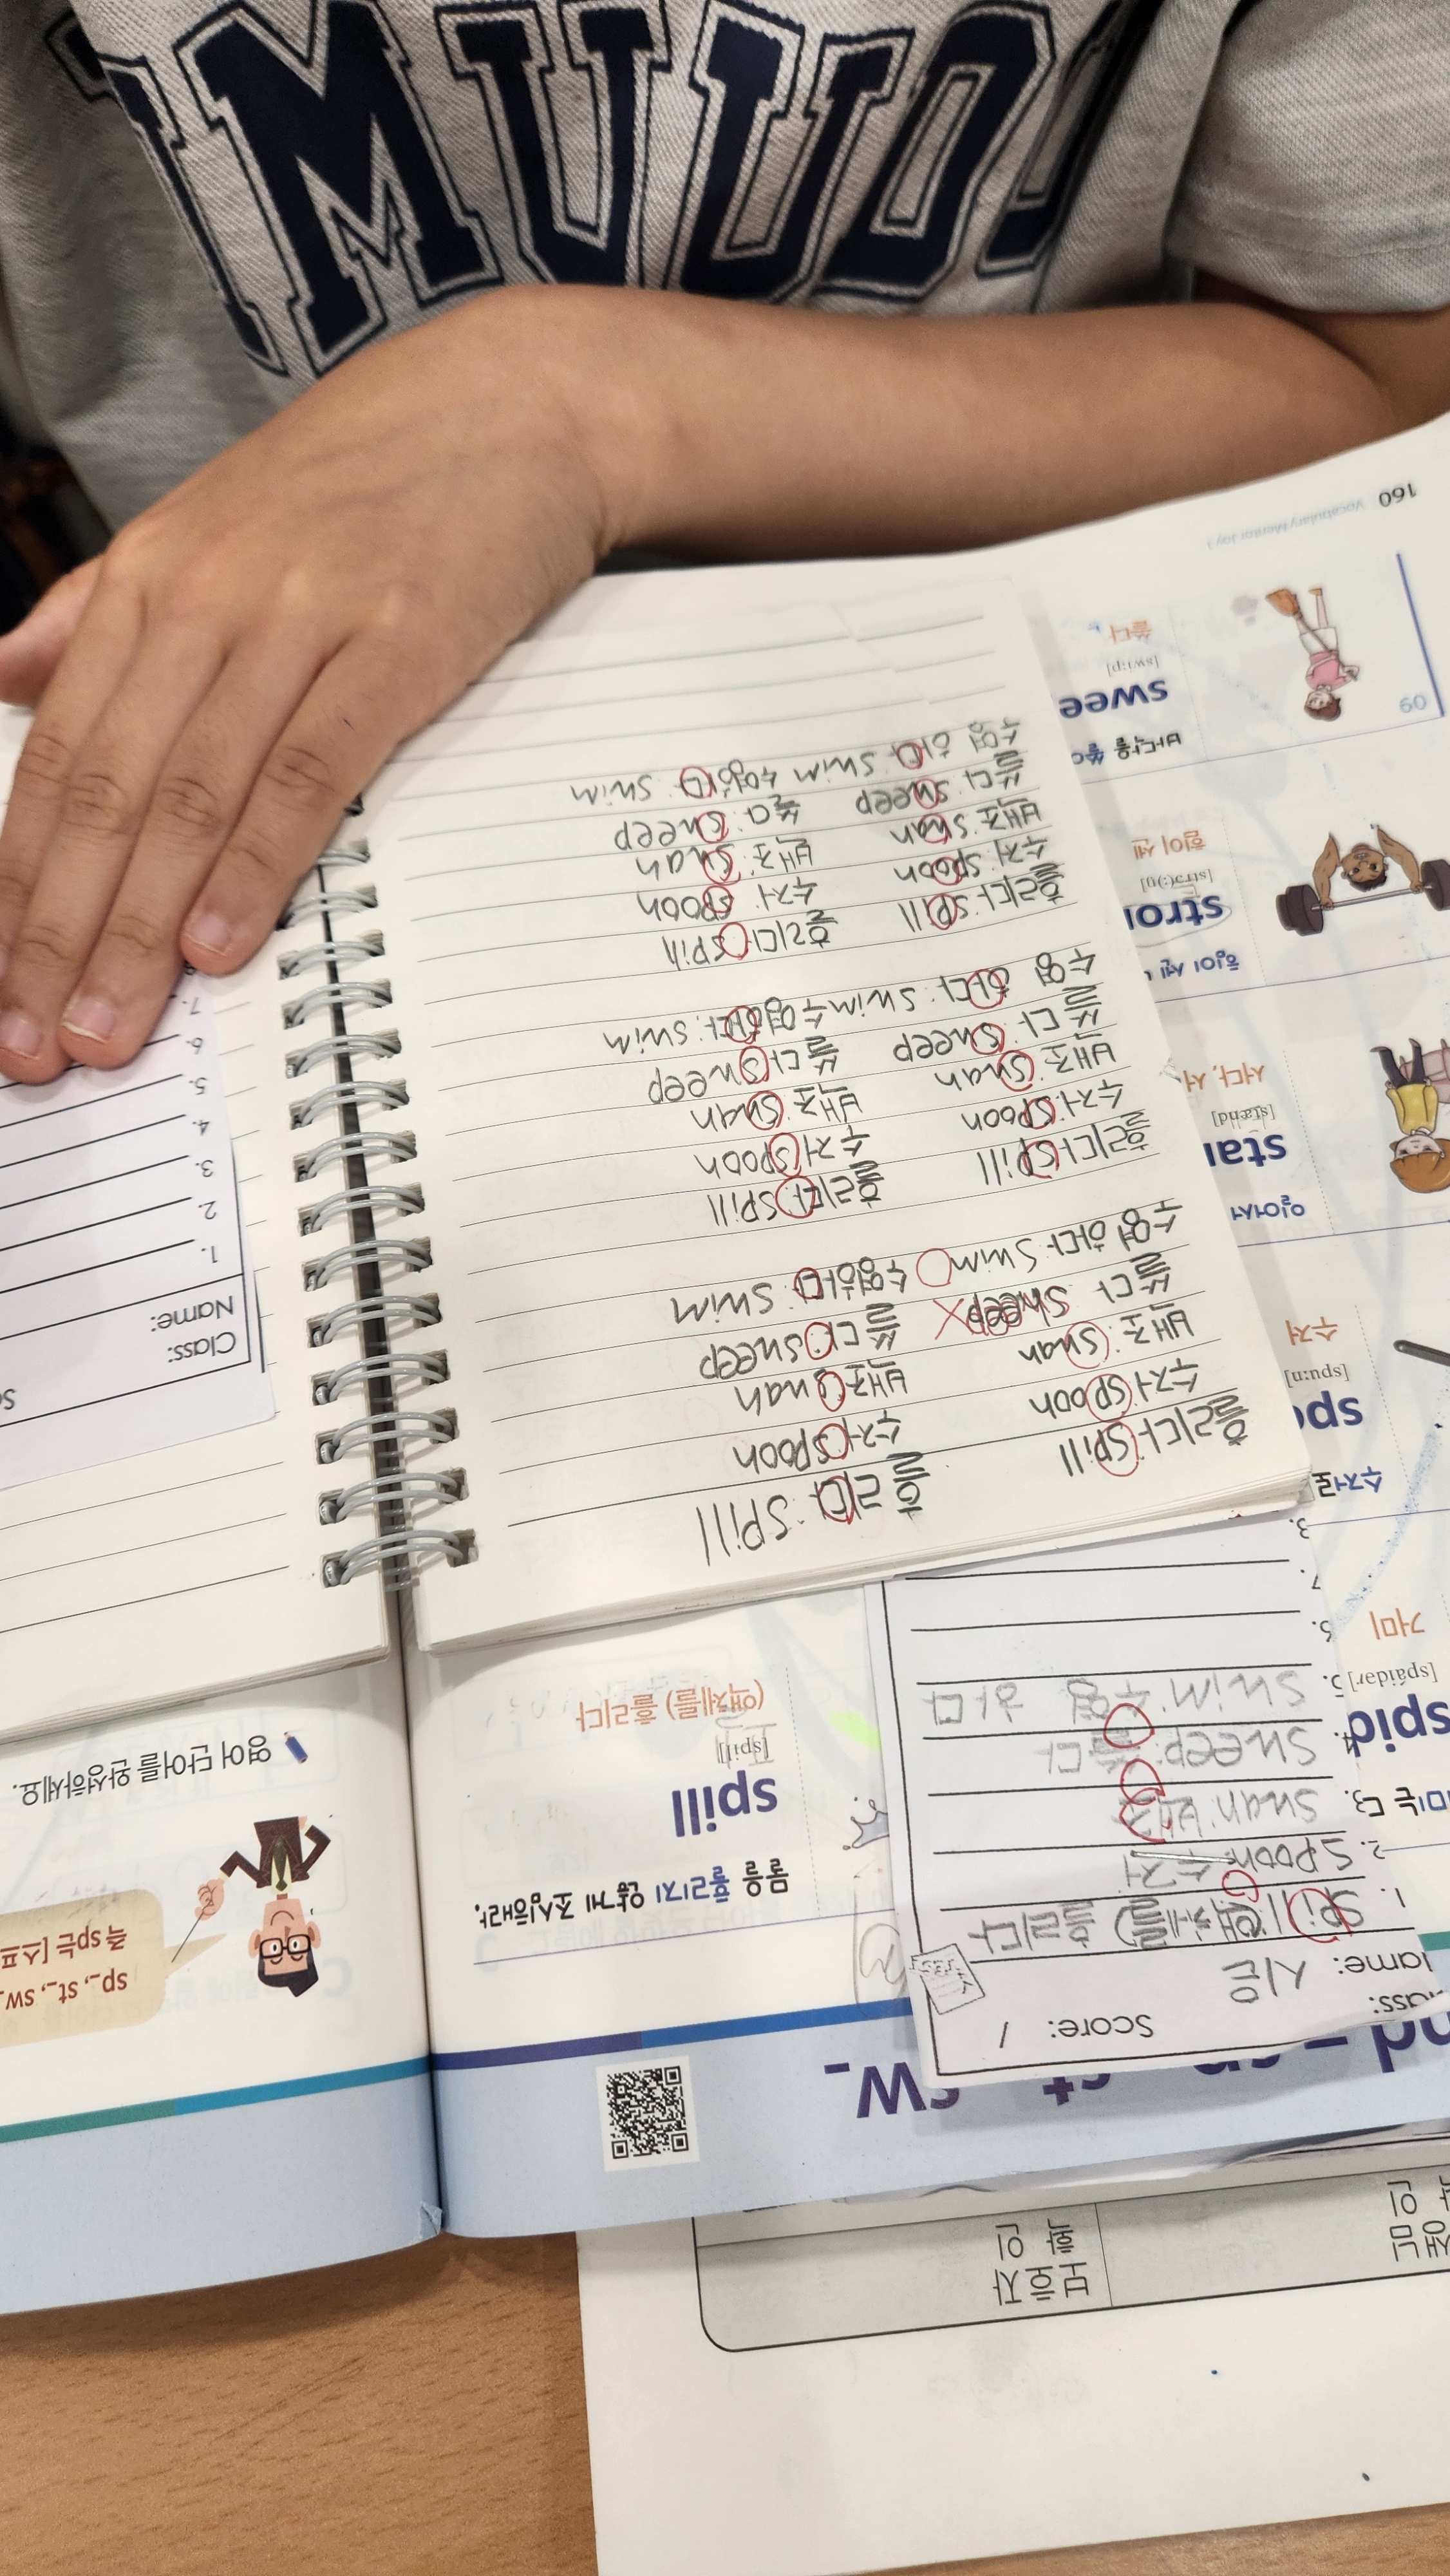 MUUO
160
Vocabulary Mentor Joy 1
sw_
spill
[spil]
(액체를) 흘리다
물을 흘리지 않게 조심해라.
spid
[spáidər]
거미
spo
[spuːn]
수저
수저로
star
[stænd]
서다, 서
일어서
stro
[strɔ(ː)ŋ]
힘이 센
힘이 센
60
swee
[swiːp]
쓸다
바닥을 쓸
Score: /
lame: 시은
1. Spill (액체를) 흘리다
2. Spoon: 수저
3. Swan: 백조
4. Sweep: 쓸다
5. Swim: 수영 하다
6.
7.
흘리다: spill
수저: spoon
백조: swan
쓸다: sweep
수영하다: swim
흘리다: spill
수저: spoon
백조: swan
쓸다: sweep
수영하다: swim
흘리다: spill
수저: spoon
백조: swan
쓸다: sweep
수영하다: swim
흘리다: spill
수저: spoon
백조: swan
쓸다: sheep
수영 하다: swim
흘리다: spill
수저: spoon
백조: swan
쓸다: sweep
수영 하다: swim
흘리다: spill
수저: spoon
백조: swan
쓸다: sweep
수영 하다: swim
Class:
Name:
1.
2.
3.
4.
5.
6.
7.
sp_, st_, sw_
즉 sp는 [스프
영어 단어를 완성하세요.
보호자
확인